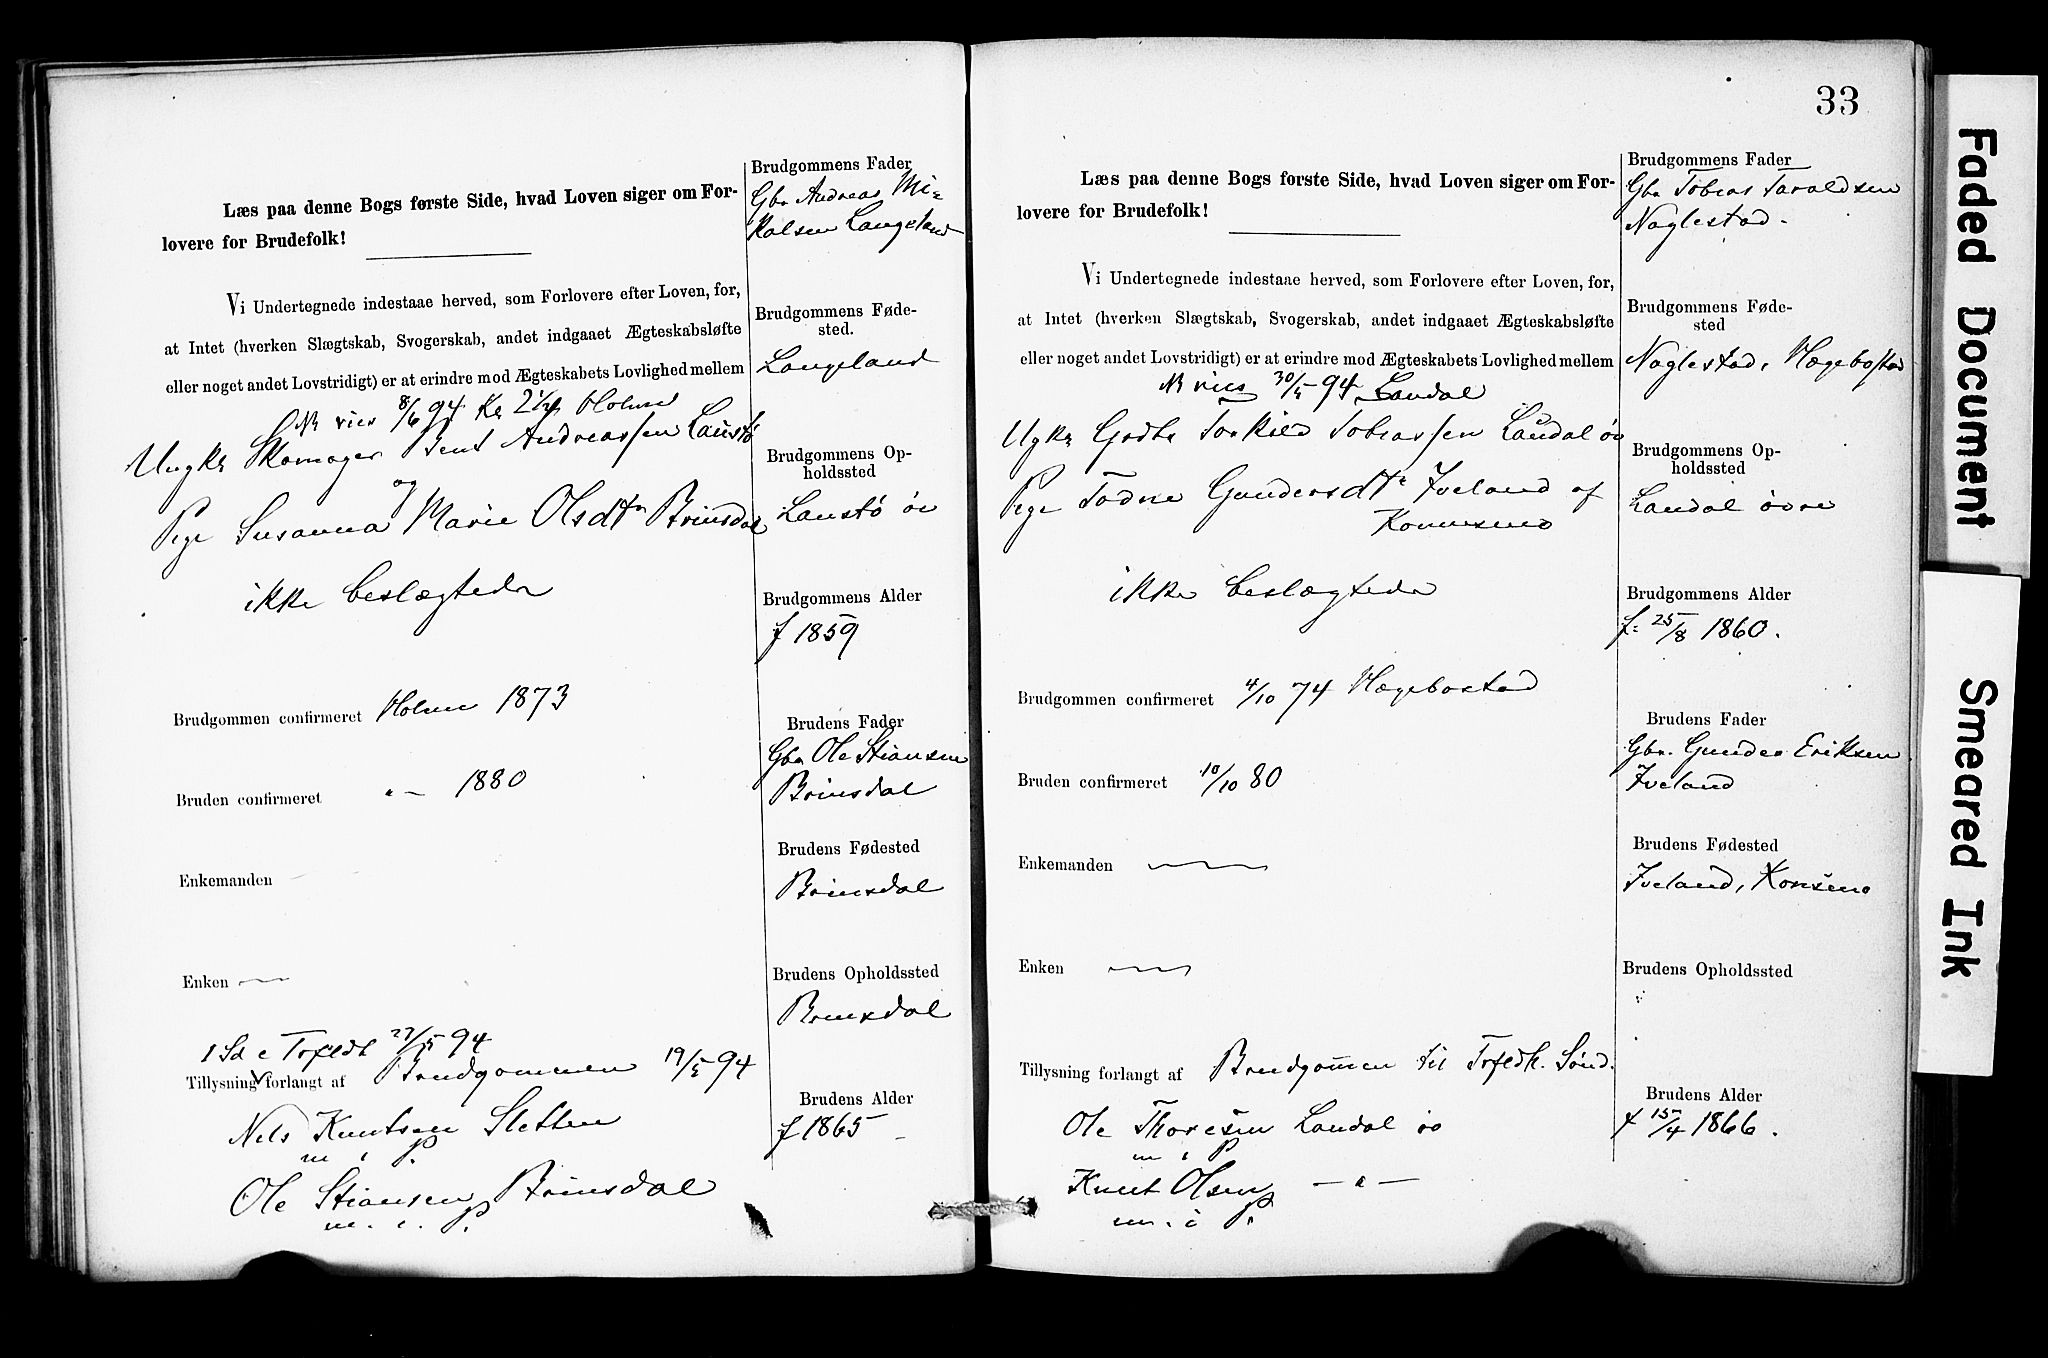 Læs paa denne Bogs første Side, hvad Loven siger om For-
lovere for Brudefolk!
Vi Undertegnede indestaae herved, som Forlovere efter Loven, for,
at Intet (hverken Slægtskab, Svogerskab, andet indgaaet Ægteskabsløfte
eller noget andet Lovstridigt) er at erindre mod Ægteskabets Lovlighed mellem
NB vies 8/6 94 Kl 2½ Holme
Ungkr Skomager Bent Andreassen Laustø
og
Pige Susanna Marie Olsdtr Brinsdal
ikke beslægtede
Brudgommen confirmeret Holme 1873
Bruden confirmeret -"- 1880
Enkemanden
Enken —
1 Sd e Trefdt 27/5 94
Tillysning forlangt af Brudgommen 19/5 94
Nils Knutsen Sletten
m. i. P.
Ole Stiansen Brinsdal
m. i. P.
Brudgommens Fader
Gbr Andreas Mi-
kalsen Langeland
Brudgommens Føde-
sted.
Langeland
Brudgommens Op-
holdssted
Laustø öv
Brudgommens Alder
f 1859
Brudens Fader
Gbr Ole Stiansen
Brinsdal
Brudens Fødested
Brinsdal
Brudens Opholdssted
Brinsdal
Brudens Alder
f 1865
33
Læs paa denne Bogs første Side, hvad Loven siger om For-
lovere for Brudefolk!
Vi Undertegnede indestaae herved, som Forlovere efter Loven, for,
at Intet (hverken Slægtskab, Svogerskab, andet indgaaet Ægteskabsløfte
eller noget andet Lovstridigt) er at erindre mod Ægteskabets Lovlighed mellem
NB vies 30/5 94 Laudal
Ugkr Grdbr Torkild Tobiassen Laudal öv
Pige Todne Gundersdtr Iveland af
Konnsmo
ikke beslægtede
Brudgommen confirmeret 4/10 74 Hægebostad
Bruden confirmeret 10/10 80
Enkemanden —
Enken —
Tillysning forlangt af Brudgommen til Trefdh. Sönd.
Ole Thoresen Laudal öv
m. i. P.
Knut Olsen -"-
m. i P.
Brudgommens Fader
Gbr Tobias Taraldsen
Naglestad.
Brudgommens Føde-
sted
Naglestad, Hægebostad
Brudgommens Op-
holdssted
Laudal övre
Brudgommens Alder
f: 25/8 1860.
Brudens Fader
Gbr. Gunder Eriksen
Iveland
Brudens Fødested
Iveland, Konsmo
Brudens Opholdssted
Brudens Alder
f 15/4 1866.
Faded Document
Smeared Ink